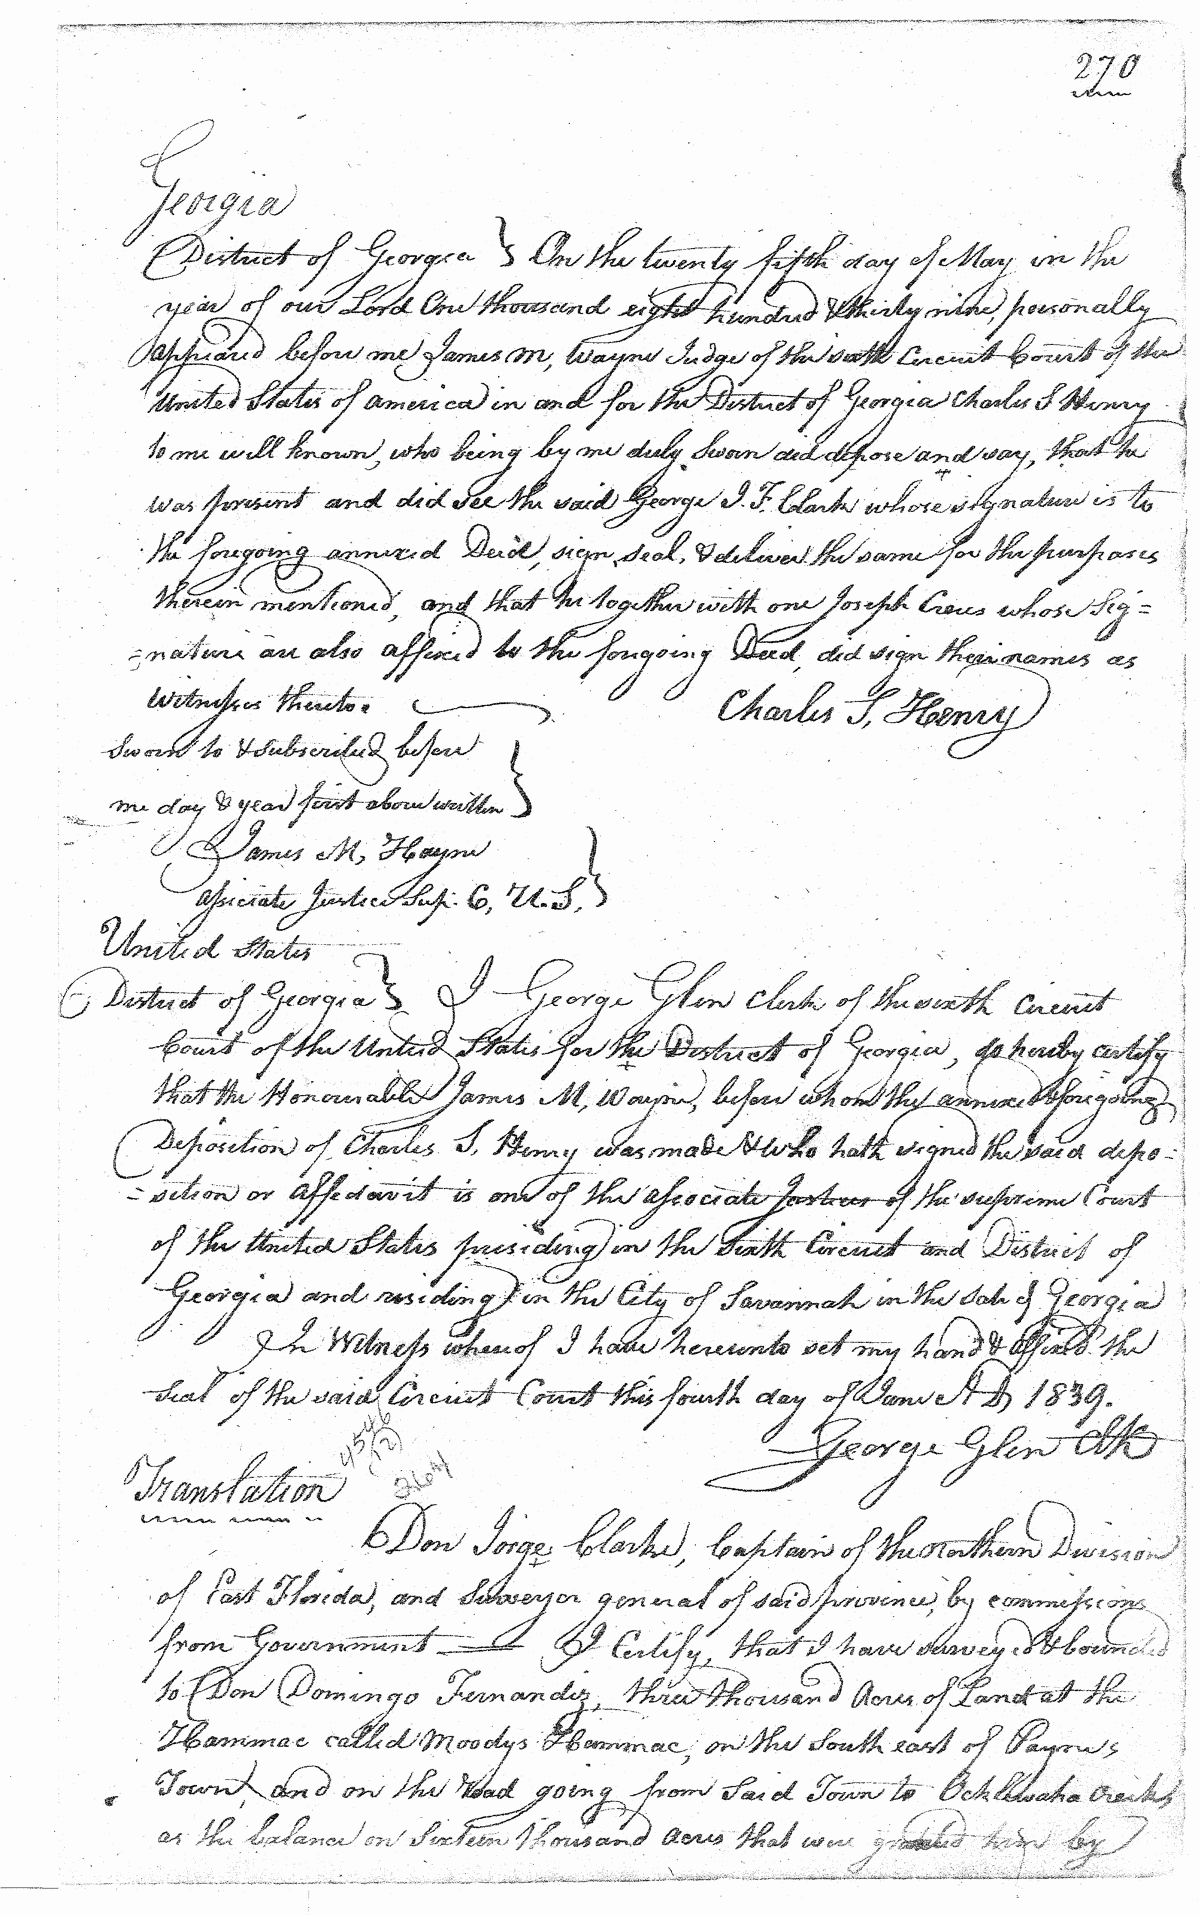 270
Georgia
District of Georgia } On the twenty fifth day of May in the
year of our Lord One thousand eight hundred & thirty nine, personally
appeared before me James M, Wayne Judge of the sixth Circuit Court of the
United States of america in and for the District of Georgia Charles S Henry
to me well known, who being by me duly Sworn did depose and say, that he
was present and did see the said George I. F. Clark whose signature is to
the foregoing annexed Deed, sign, seal, & deliver the same for the purposes
therein mentioned, and that he together with one Joseph Crews whose Sig=
=nature are also affixed to the foregoing Deed, did sign their names as
Witnesses thereto.
Charles S, Henry
Sworn to & subscribed before
me day & year first above written }
James M, Hayne
associate Justice Sup. C, U.S, }
United States
District of Georgia } I George Glen clerk of the sixth Circuit
Court of the United States for the District of Georgia, do hereby certify
that the Honourable James M, Wayne, before whom the annexed & foregoing
Deposition of Charles S, Henry was made & who hath signed the said depo=
=sition or affidavit is one of the associate Justices of the supreme Court
of the United States presiding in the Sixth Circuit and District of
Georgia and residing in the City of Savannah in the Sate of Georgia
In Witness whereof I have hereunto set my hand & affixed the
Seal of the said Circuit Court this fourth day of June A D 1839.
George Glen Clk
Translation
Don Jorge Clarke, Captain of the Northern Division
of East Florida, and Surveyor general of said province, by commissions
from Government I Certify, that I have surveyed & bounded
to Don Domingo Fernandez, three thousand Acres of Land at the
Hammac called Moodys Hammac, on the South east of Paynes
Town, and on the road going from Said Town to Ocklewaha Creek,
as the balance on Sixteen thousand acres that were granted him by